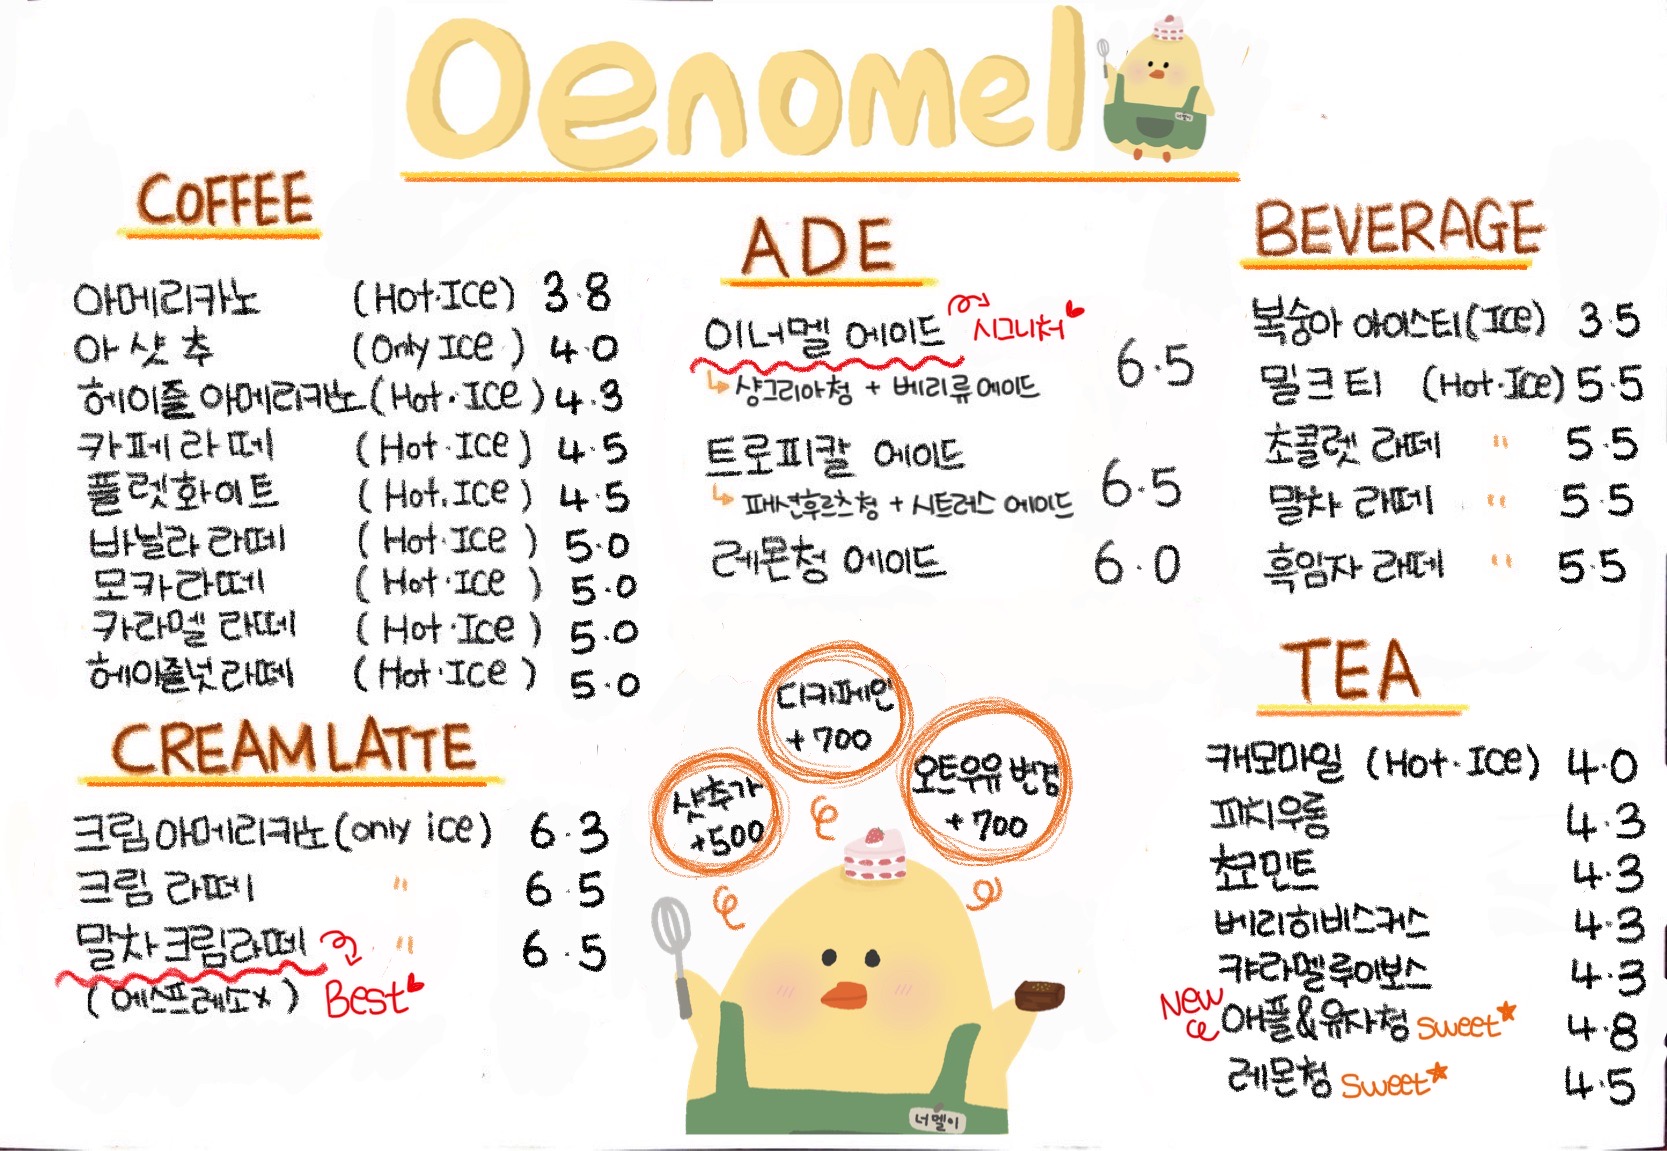 Oenomel
COFFEE
아메리카노 (Hot·Ice) 3.8
아샷추 (Only Ice) 4.0
헤이즐 아메리카노 (Hot·Ice) 4.3
카페라떼 (Hot·Ice) 4.5
플렛화이트 (Hot.Ice) 4.5
바닐라 라떼 (Hot·Ice) 5.0
모카라떼 (Hot·Ice) 5.0
카라멜 라떼 (Hot·Ice) 5.0
헤이즐넛 라떼 (Hot·Ice) 5.0
CREAM LATTE
크림 아메리카노 (only ice) 6.3
크림 라떼 " 6.5
말차크림라떼 " 6.5
(에스프레소x) Best
ADE
이너멜 에이드 시그니처 6.5
샹그리아청 + 베리류에이드
트로피칼 에이드 6.5
패션후르츠청 + 시트러스 에이드
레몬청 에이드 6.0
샷추가
+500
디카페인
+700
오트우유 변경
+700
너멜이
BEVERAGE
복숭아 아이스티 (Ice) 3.5
밀크티 (Hot·Ice) 5.5
초콜렛 라떼 " 5.5
말차 라떼 " 5.5
흑임자 라떼 " 5.5
TEA
캐모마일 (Hot·Ice) 4.0
피치우롱 4.3
초코민트 4.3
베리히비스커스 4.3
캬라멜루이보스 4.3
New 애플&유자청 sweet 4.8
레몬청 sweet 4.5